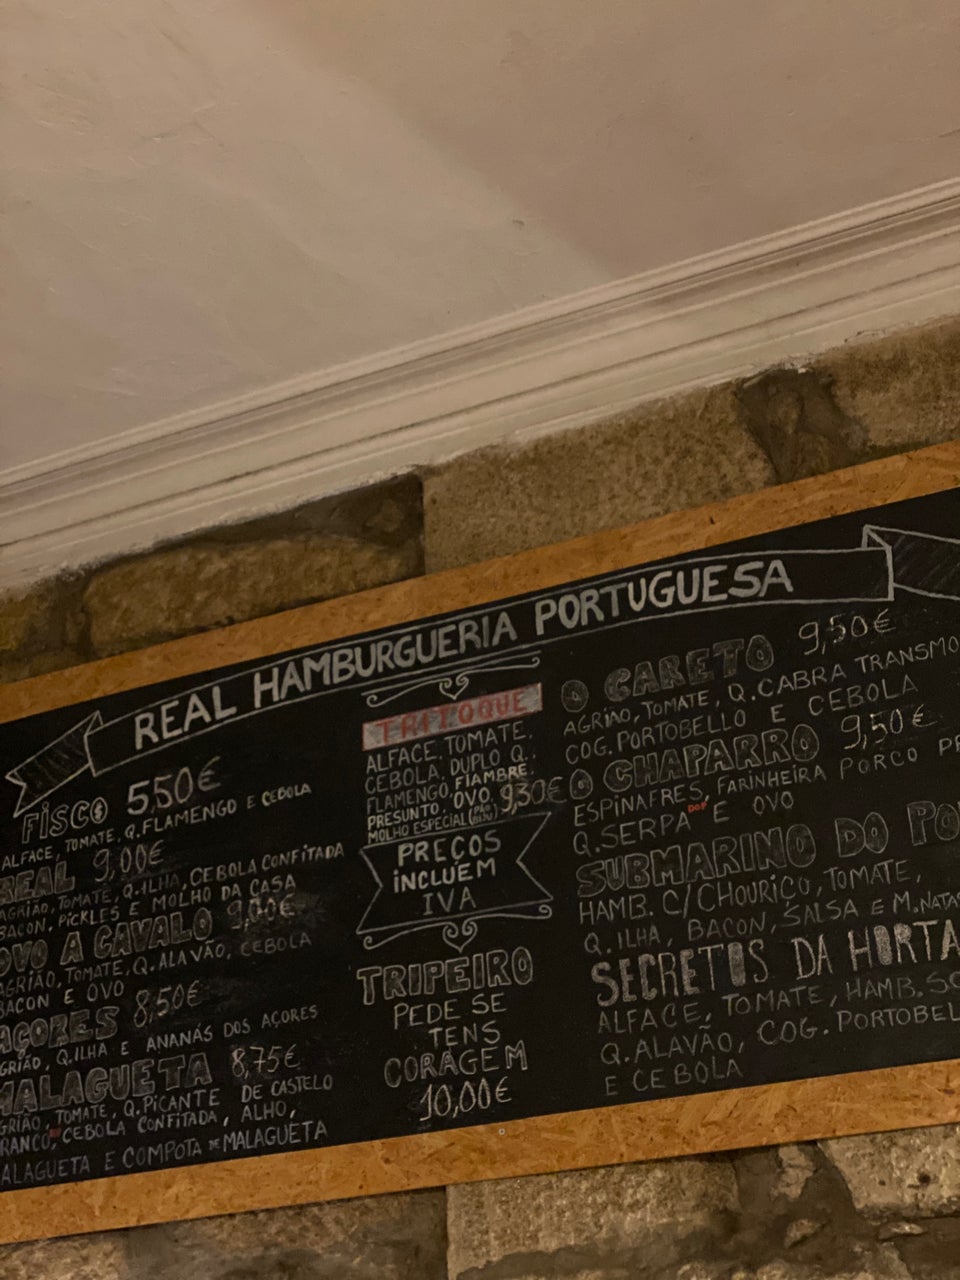 REAL HAMBURGUERIA PORTUGUESA
FISCO 5,50€
ALFACE, TOMATE, Q.FLAMENGO E CEBOLA
REAL 9,00€
AGRIÃO, TOMATE, Q.ILHA, CEBOLA CONFITADA
BACON, PICKLES E MOLHO DA CASA
OVO A CAVALO 9,00€
AGRIÃO, TOMATE, Q.ALAVÃO, CEBOLA
BACON E OVO
AÇORES 8,50€
GRIÃO, Q.ILHA E ANANÁS DOS AÇORES
MALAGUETA 8,75€
GRIÃO, TOMATE, Q.PICANTE DE CASTELO
RANCO, CEBOLA CONFITADA, ALHO,
ALAGUETA E COMPOTA DE MALAGUETA
ALFACE, TOMATE,
CEBOLA, DUPLO Q.
FLAMENGO, FIAMBRE,
PRESUNTO, OVO, 9,30€
MOLHO ESPECIAL
PREÇOS
INCLUEM
IVA
TRIPEIRO
PEDE SE
TENS
CORAGEM
10,00€
O CARETO 9,50€
AGRIÃO, TOMATE, Q.CABRA TRANSMO
COG. PORTOBELLO E CEBOLA
O CHAPARRO 9,50€
ESPINAFRES, FARINHEIRA PORCO PR
Q.SERPA DOP E OVO
SUBMARINO DO PO
HAMB. C/CHOURIÇO, TOMATE,
Q.ILHA, BACON, SALSA E M.NATA
SECRETOS DA HORTA
ALFACE, TOMATE, HAMB. SO
Q.ALAVÃO, COG. PORTOBEL
E CEBOLA